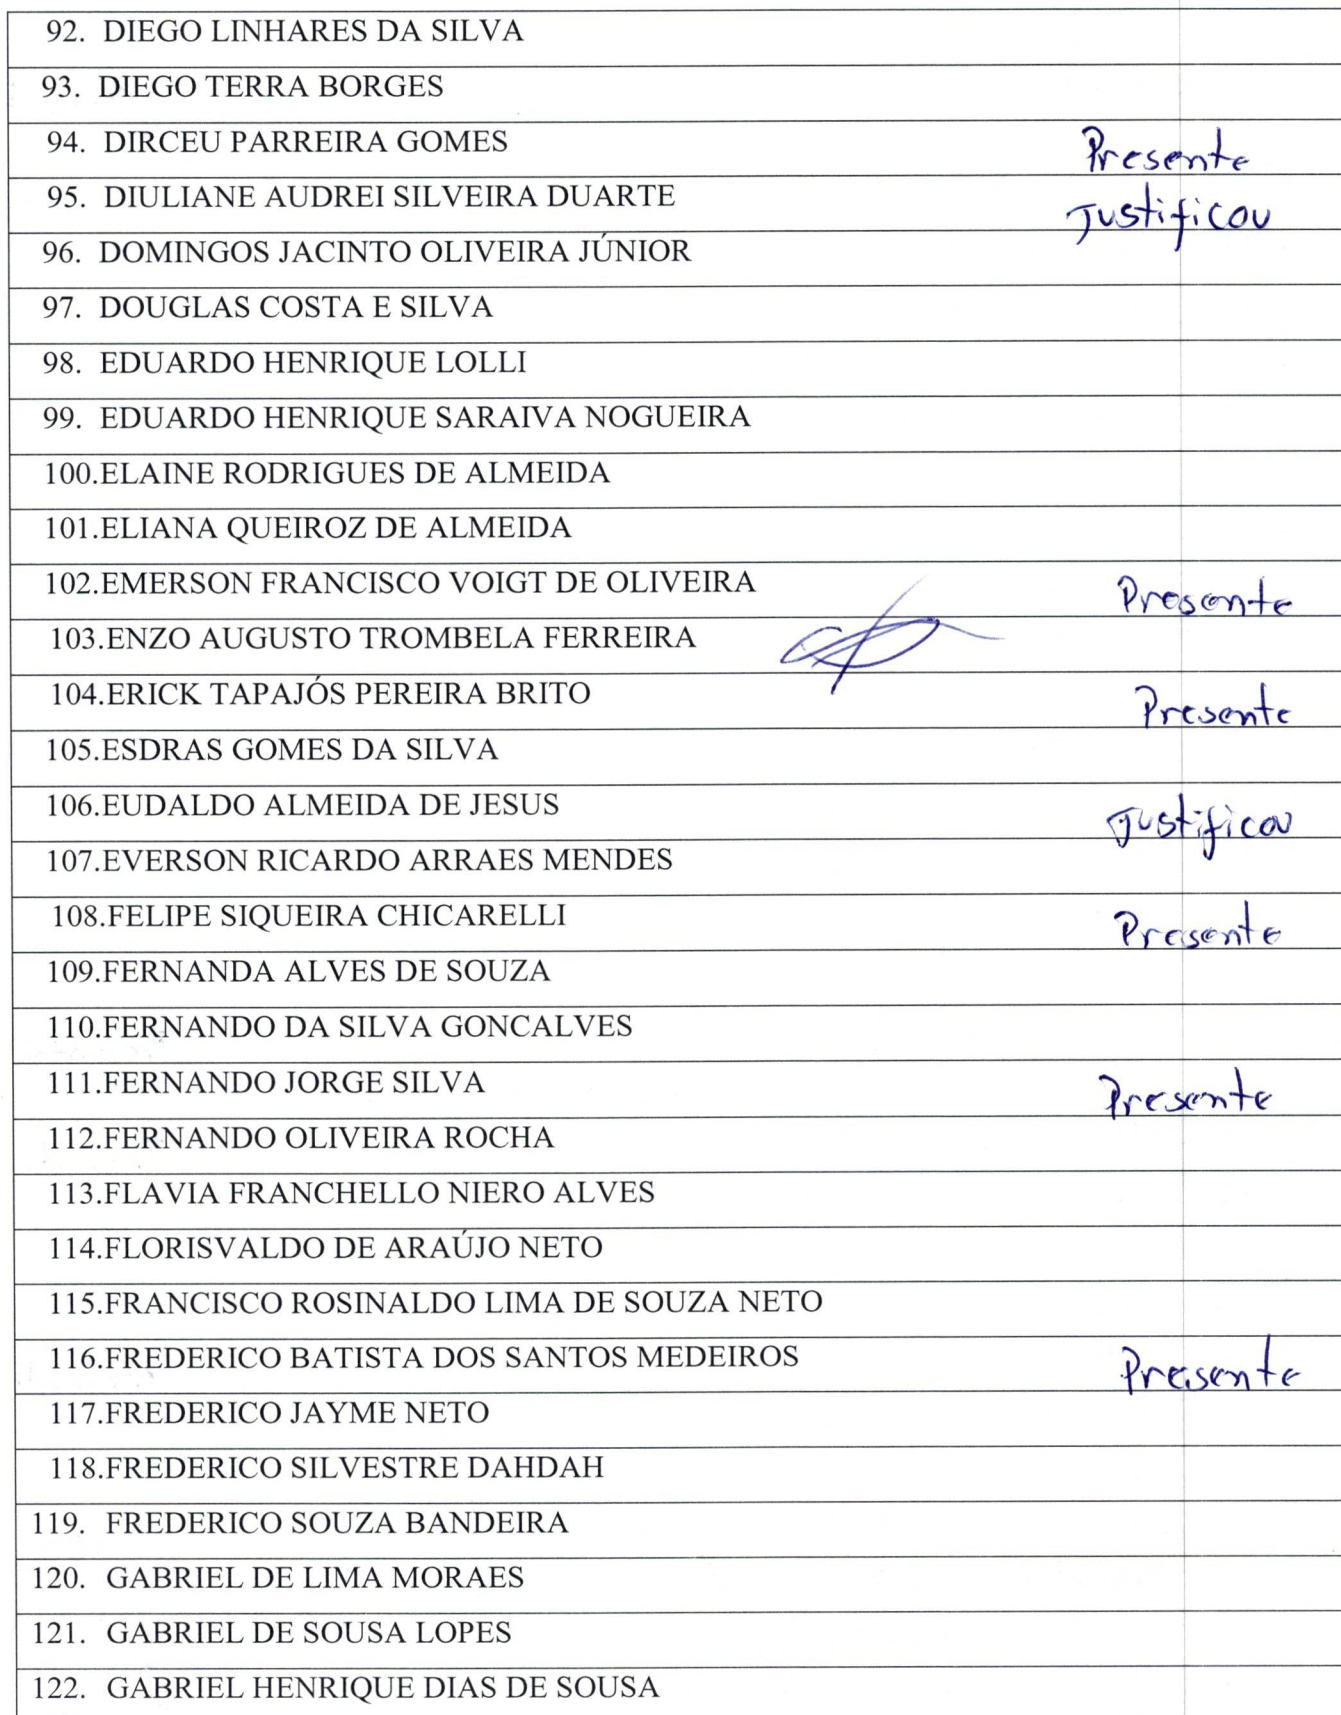 92. DIEGO LINHARES DA SILVA
93. DIEGO TERRA BORGES
94. DIRCEU PARREIRA GOMES Presente
95. DIULIANE AUDREI SILVEIRA DUARTE Justificou
96. DOMINGOS JACINTO OLIVEIRA JÚNIOR
97. DOUGLAS COSTA E SILVA
98. EDUARDO HENRIQUE LOLLI
99. EDUARDO HENRIQUE SARAIVA NOGUEIRA
100.ELAINE RODRIGUES DE ALMEIDA
101.ELIANA QUEIROZ DE ALMEIDA
102.EMERSON FRANCISCO VOIGT DE OLIVEIRA Presente
103.ENZO AUGUSTO TROMBELA FERREIRA
104.ERICK TAPAJÓS PEREIRA BRITO Presente
105.ESDRAS GOMES DA SILVA
106.EUDALDO ALMEIDA DE JESUS Justificou
107.EVERSON RICARDO ARRAES MENDES
108.FELIPE SIQUEIRA CHICARELLI Presente
109.FERNANDA ALVES DE SOUZA
110.FERNANDO DA SILVA GONCALVES
111.FERNANDO JORGE SILVA Presente
112.FERNANDO OLIVEIRA ROCHA
113.FLAVIA FRANCHELLO NIERO ALVES
114.FLORISVALDO DE ARAÚJO NETO
115.FRANCISCO ROSINALDO LIMA DE SOUZA NETO
116.FREDERICO BATISTA DOS SANTOS MEDEIROS Presente
117.FREDERICO JAYME NETO
118.FREDERICO SILVESTRE DAHDAH
119. FREDERICO SOUZA BANDEIRA
120. GABRIEL DE LIMA MORAES
121. GABRIEL DE SOUSA LOPES
122. GABRIEL HENRIQUE DIAS DE SOUSA